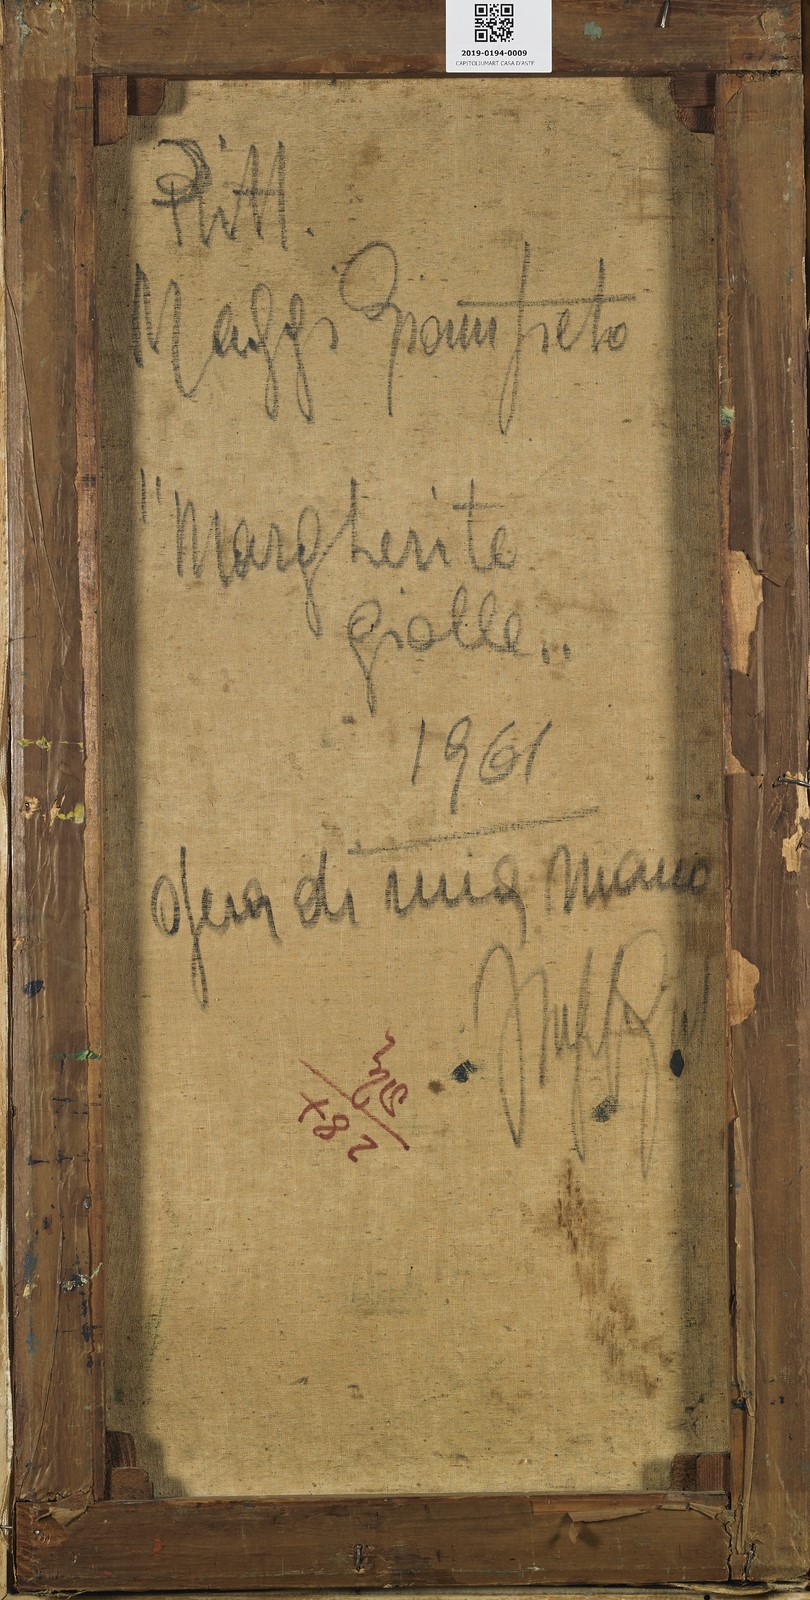 2019-0194-0009
CAPITOLIUMART CASA D'ASTE
Pitt.
Maggi Gianfreto
"Margherite
gialle„
1961
opera di mia mano
287